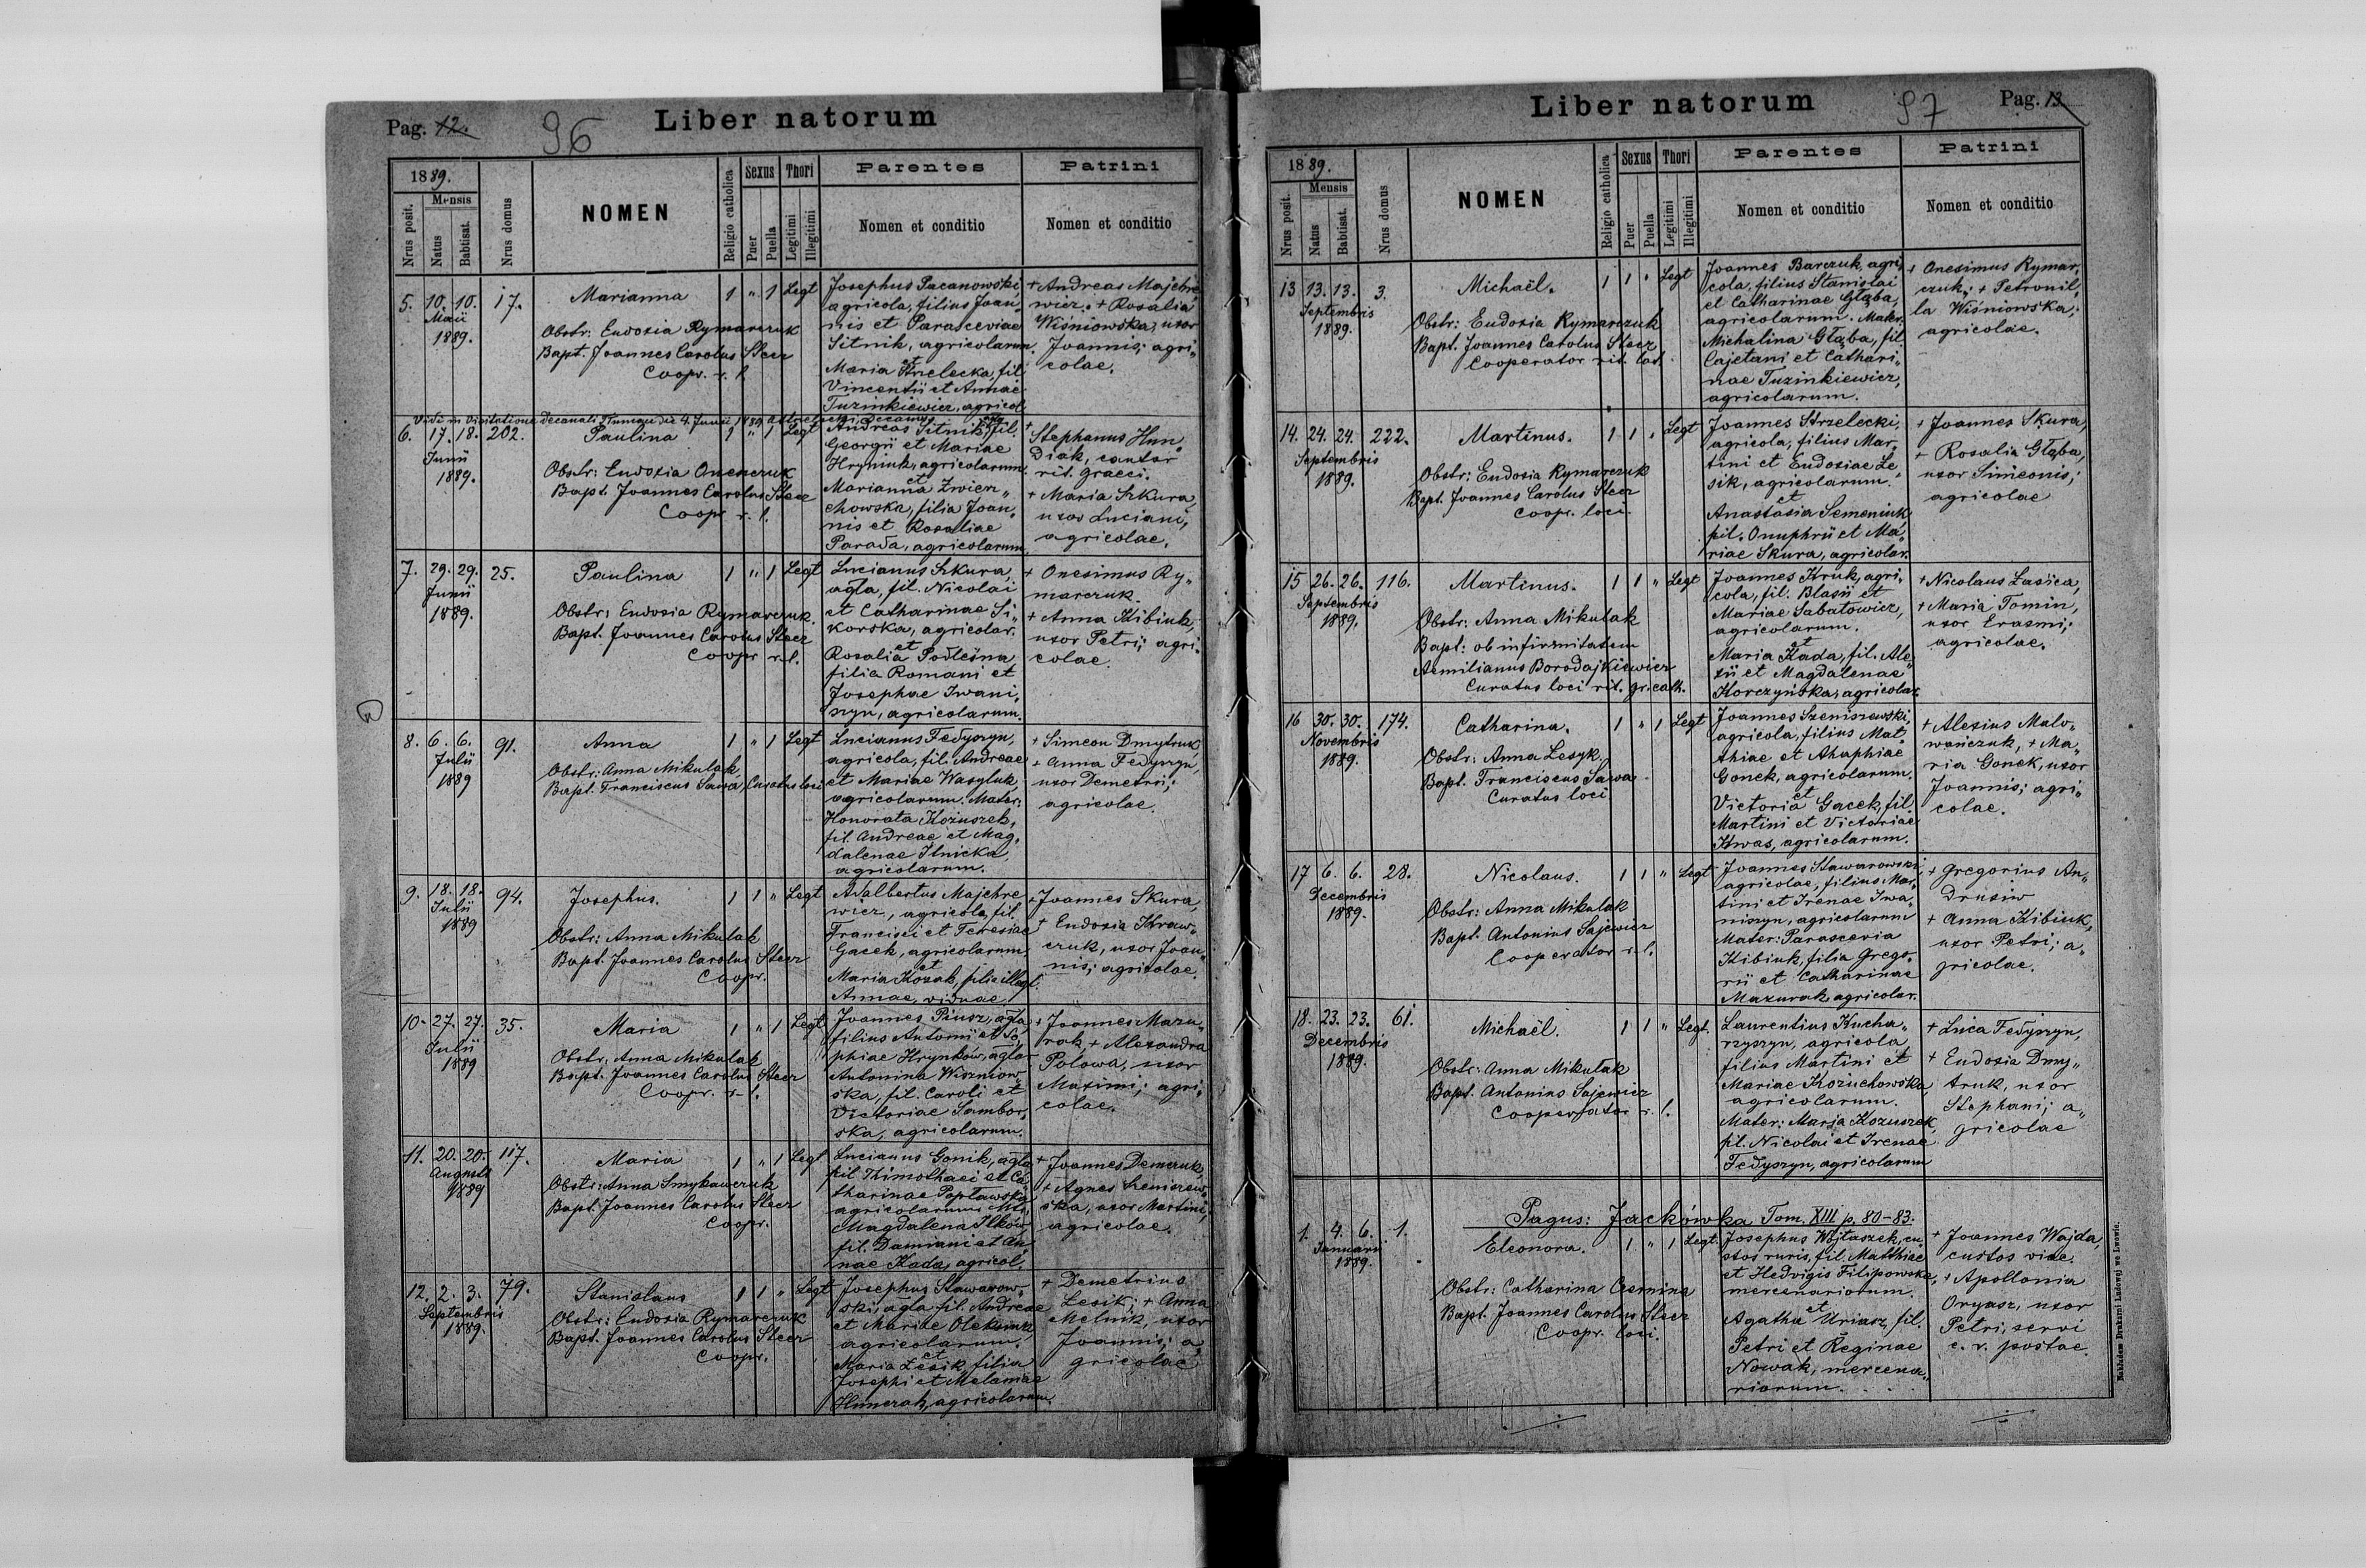 Pag. 12.
96
Liber natorum
1889.
Nrus posit.
Mensis
Natus
Babtisat.
Nrus domus
NOMEN
Religio catholica
Sexus
Puer
Puella
Thori
Legitimi
Illegitimi
Parentes
Nomen et conditio
Patrini
Nomen et conditio
5. 10. 10. 17.
Maii
1889.
Marianna
1 " 1 Legt
Obstr: Eudoxia Rymarczuk
Bapt. Joannes Carolus Stecz
Coop. r. l.
Josephus Pacanowski
agricola, filius Joan„
nis et Parasceviae
Sitnik, agricolarum.
et
Maria Strzelecka, fil.
Vincentii et Annae
Tuzinkiewicz, agricol.
+ Andreas Majchre
wicz. + Rosalia
Wiśniowska, uxor
Joannis; agri„
colae.
Vidi in visitatione decanali die 4. Junii 1889
6. 17. 18. 202.
Junii
1889.
Paulina
1 " 1 Legt
Obstr: Eudoxia
Bapt. Joannes Carolus Stecz
Coop. r. l.
Andreas Sitnik, fil.
Georgii et Mariae
Hryniuk, agricolarum.
et
Marianna Zwier„
chowska, filia Joan„
nis et Rosaliae
Parada, agricolarum.
+
Stephanus Hun„
diak, cantor
rit. graeci.
+ Maria Szkura,
uxor Luciani,
agricolae.
7. 29. 29. 25.
Junii
1889.
Paulina
1 " 1 Legt
Obstr: Eudoxia Rymarczuk.
Bapt. Joannes Carolus Stecz
Coopr r. l.
Lucianus Szkura,
agla, fil. Nicolai
et Catharinae Si„
korska, agricolar.
et
Rosalia Podleśna
filia Romani et
Josephae Iwani„
szyn, agricolarum.
+ Onesimus Ry„
marczuk.
+ Anna Kibiuk,
uxor Petri; agri„
colae.
8. 6. 6. 91.
Julii
1889
Anna
1 " 1 Legt
Obstr: Anna Mikulak,
Bapt. Franciscus Sawa, Curatus loci
Lucianus Fedyszyn,
agricola, fil. Andreae
et Mariae Wasyluk,
agricolarum. Mater:
Honorata Kozuszek,
fil. Andreae et Mag„
dalenae Ilnicka,
agricolarum.
+ Simeon Dmytruk
+ Anna Fedyszyn,
uxor Demetrii;
agricolae.
9. 18. 18. 94.
Julii
1889
Josephus.
1 1 " Legt
Obstr: Anna Mikulak
Bapt. Joannes Carolus Stecz
Coopr.
Adalbertus Majchre
wicz, agricola, fil.
Francisci et Teresiae
Gacek, agricolarum,
et
Maria Kozak, filia illegt.
Annae, viduae.
+ Joannes Skura,
+ Eudoxia Kraw„
czuk, uxor Joan„
nis; agricolae.
10. 27. 27. 35.
Julii
1889
Maria
1 " 1 Legt
Obstr: Anna Mikulak
Bapt. Joannes Carolus Stecz
Coopr. r. l.
Joannes Piusz, agla,
filius Antonii et So„
phiae Hrynków, aglar
Antonina Wiszniow„
ska, fil. Caroli et
Victoriae Sambor„
ska, agricolarum.
+ Joannes Mazu„
rak, + Alexandra
Polowa, uxor
Maximi; agri„
colae.
11. 20. 20. 117.
Augusti
1889
Maria
1 " 1 Legt
Obstr: Anna Smykawczuk
Bapt. Joannes Carolus Stecz
Coopr.
Lucianus Gonik, agla,
fil. Thimothaei et Ca„
tharinae Popławska,
agricolarum.
Magdalena Ilków
fil. Damiani et An„
nae Kada, agricol.
+ Joannes Demczuk,
+ Agnes Szeniszew„
ska, uxor Martini,
agricolae.
12. 2. 3. 79.
Septembris
1889.
Stanislaus
1 1 " Legt
Obstr: Eudoxia Rymarczuk
Bapt. Joannes Carolus Stecz
Coopr.
Josephus Stawarow„
ski, agla, fil. Andreae
et Mariae Oleksiuk,
agricolarum.
et
Maria Lesik, filia
Josephi et Melaniae
agricolarum.
+ Demetrius
Lesik; + Anna
Melnik, uxor
Joannis; a„
gricolae
Liber natorum
97
Pag. 13
1889.
Nrus posit.
Mensis
Natus
Babtisat.
Nrus domus
NOMEN
Religio catholica
Sexus
Puer
Puella
Thori
Legitimi
Illegitimi
Parentes
Nomen et conditio
Patrini
Nomen et conditio
13 13. 13. 3.
Septembris
1889.
Michaël.
1 1 " Legt
Obstr: Eudoxia Rymarczuk
Bapt. Joannes Carolus Stecz
Cooperator rit. lat.
Joannes Barczuk, agri„
cola, filius Stanislai
et Catharinae Głąba,
agricolarum. Mater:
Michalina Głąba, fil.
Cajetani et Cathari„
nae Tuzinkiewicz,
agricolarum.
+ Onesimus Rymar„
czuk; + Petronil„
la Wiśniowska;
agricolae.
14. 24. 24. 222.
Septembris
1889.
Martinus.
1 1 " Legt
Obstr: Eudoxia Rymarczuk
Bapt. Joannes Carolus Stecz
Coopr. loci.
Joannes Strzelecki,
agricola, filius Mar„
tini et Eudoxiae Le„
sik, agricolarum.
et
Anastasia Semeniuk
fil. Onuphrii et Ma„
riae Skura, agricolar.
+ Joannes Skura,
+ Rosalia Głąba,
uxor Simeonis;
agricolae
15 26. 26. 116.
Septembris
1889.
Martinus.
1 1 " Legt
Obstr: Anna Mikulak
Bapt: ob infirmitatem
Aemilianus Borodajkiewicz
Curatus loci rit. gr. cath.
Joannes Kruk, agri„
cola, fil. Blasii et
Mariae Sabatowicz,
agricolarum.
et
Maria Kada, fil. Ale„
xii et Magdalenae
Korczyńska, agricolar.
+ Nicolaus Łasica,
+ Maria Tomin,
uxor Erasmi;
agricolae.
16 30. 30. 174.
Novembris
1889.
Catharina.
1 " 1 Legt
Obstr: Anna Lesyk.
Bapt. Franciscus Sawa
Curatus loci
Joannes Szeniszewski,
agricola, filius Mat„
thiae et Ahaphiae
Gonek, agricolarum.
et
Victoria Gacek, fil.
Martini et Victoriae
Kwas, agricolarum.
+ Alexius Malo„
wańczuk, + Ma„
ria Gonek, uxor
Joannis; agri„
colae.
17 6. 6. 28.
Decembris
1889.
Nicolaus.
1 1 " Legt
Obstr: Anna Mikulak
Bapt. Antonius Sajewicz
Cooperator r. l.
Joannes Stawarowski
agricolae, filius Mar„
tini et Irenae Iwa„
niszyn, agricolarum
Mater: Parascevia
Kibiuk, filia Grego„
rii et Catharinae
Mazurak, agricolar.
+ Gregorius An„
drusiw
+ Anna Kibiuk,
uxor Petri; a„
gricolae.
18. 23. 23. 61.
Decembris
1889.
Michaël.
1 1 " Legt.
Obstr: Anna Mikulak
Bapt. Antonius Sajewicz
Cooperator r. l.
Laurentius Kucha„
rzyszyn, agricola
filius Martini et
Mariae Koziuchowska,
agricolarum.
Mater: Maria Kozuszek,
fil. Nicolai et Irenae
Fedyszyn, agricolarum
+ Luca Fedyszyn,
+ Eudoxia Dmy„
truk, uxor
Stephani; a„
gricolae
Pagus: Jackówka Tom. XIII p. 80-83.
1. 4. 6. 1.
Januarii
1889.
Eleonora.
1 " 1 Legt.
Obstr: Catharina Czernina
Bapt. Joannes Carolus Stecz
Coopr. loci.
Josephus Wojtaszek, cu„
stos ruris, fil. Matthiae
et Hedvigis Filipowska,
mercenariorum.
et
Agatha Uriasz, fil.
Petri et Reginae
Nowak, mercena„
riorum.
+ Joannes Wajda,
custos viae.
+ Apollonia
Oryasz, uxor
Petri, servi
c. r. postae.
Nakładem Drukarni Ludowej we Lwowie.